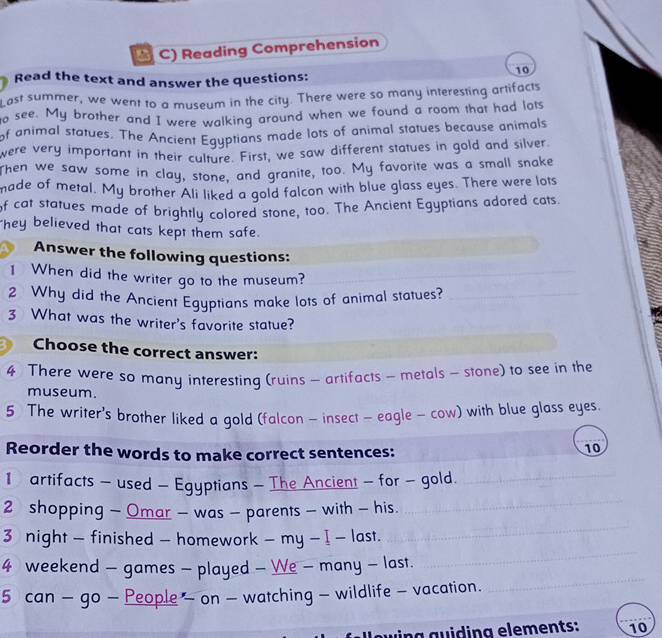 C) Reading Comprehension
Read the text and answer the questions:
10
Last summer, we went to a museum in the city. There were so many interesting artifacts
to see. My brother and I were walking around when we found a room that had lots
of animal statues. The Ancient Egyptians made lots of animal statues because animals
were very important in their culture. First, we saw different statues in gold and silver.
Then we saw some in clay, stone, and granite, too. My favorite was a small snake
made of metal. My brother Ali liked a gold falcon with blue glass eyes. There were lots
of cat statues made of brightly colored stone, too. The Ancient Egyptians adored cats.
They believed that cats kept them safe.
A Answer the following questions:
1 When did the writer go to the museum?
2 Why did the Ancient Egyptians make lots of animal statues?
3 What was the writer's favorite statue?
B Choose the correct answer:
4 There were so many interesting (ruins – artifacts – metals – stone) to see in the
museum.
5 The writer's brother liked a gold (falcon – insect – eagle – cow) with blue glass eyes.
Reorder the words to make correct sentences:
10
1 artifacts – used – Egyptians – The Ancient – for – gold.
2 shopping – Omar – was – parents – with – his.
3 night – finished – homework – my – I – last.
4 weekend – games – played – We – many – last.
5 can – go – People – on – watching – wildlife – vacation.
following guiding elements:
10